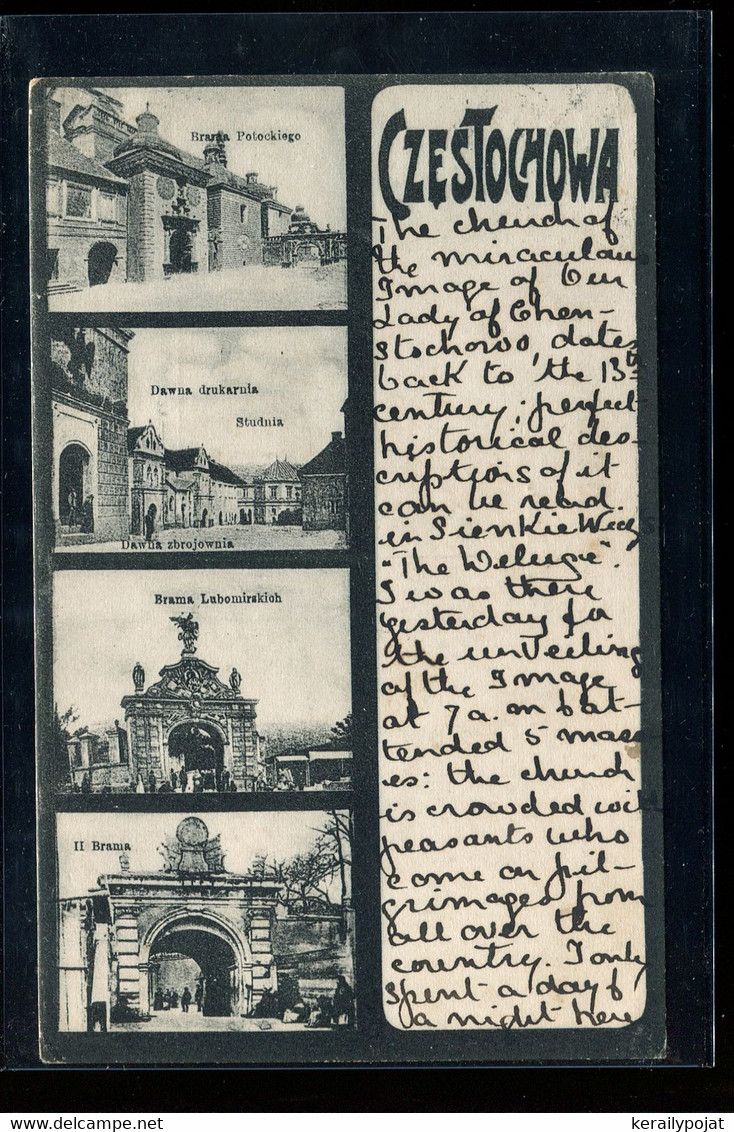 Brama Potockiego
Dawna drukarnia
Studnia
Dawna zbrojownia
Brama Lubomirskich
II Brama
CZĘSTOCHOWA
The church of
the miraculous
Image of Our
Lady of Chen-
stochowo, dates
back to the 13th
century; perfect
historical des-
criptions of it
can be read
in Sienkiewicz's
"The Deluge".
I was there
yesterday for
the unveiling
of the Image
at 7 a.m & at-
tended 5 mass
es: the church
is crowded with
peasants who
come on pil-
grimages from
all over the
country. I only
spent a day &
a night here
© www.delcampe.net
kerailypojat